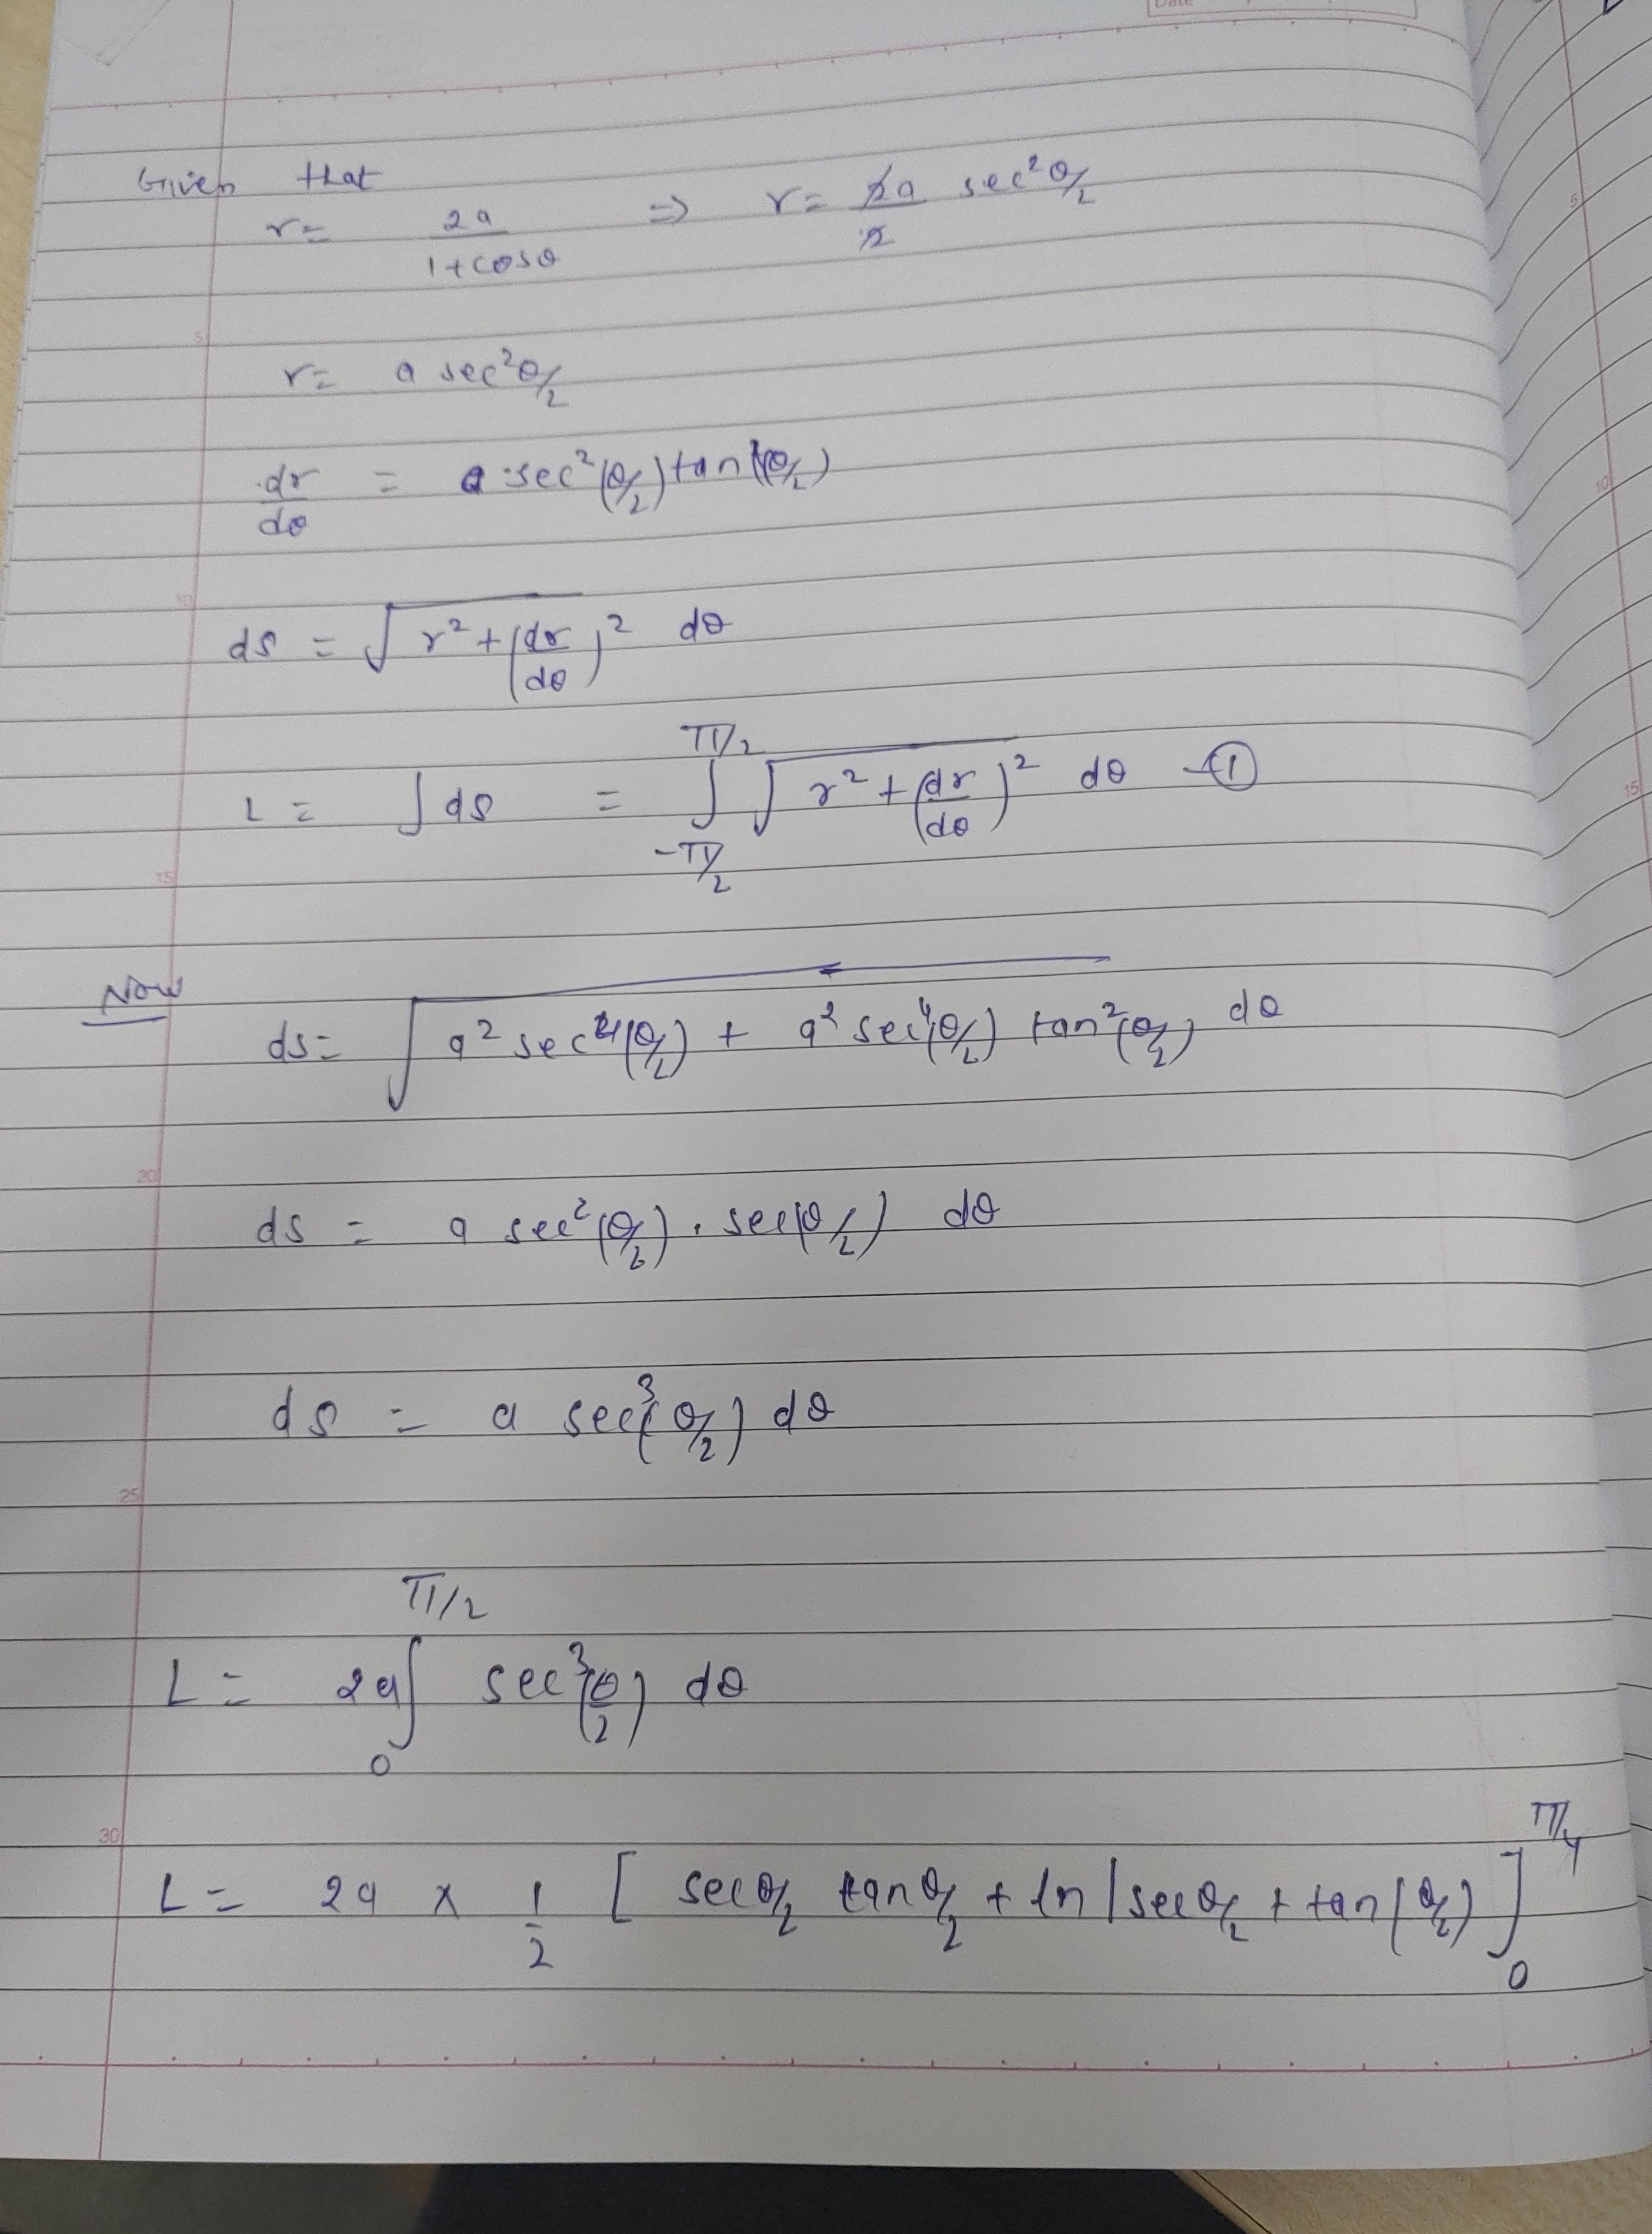 Date
Given that
r = 2a / 1+cosθ ⇒ r = 2a / 2 sec²θ/2
r = a sec²θ/2
dr/dθ = a sec²(θ/2) tan(θ/2)
ds = √(r² + (dr/dθ)²) dθ
L = ∫ ds = ∫_{-π/2}^{π/2} √(r² + (dr/dθ)²) dθ —①
Now
ds = √(a² sec⁴(θ/2) + a² sec⁴(θ/2) tan²(θ/2)) dθ
ds = a sec²(θ/2) . sec(θ/2) dθ
ds = a sec³(θ/2) dθ
L = 2a ∫_0^{π/2} sec³(θ/2) dθ
L = 2a × 1/2 [ secθ/2 tanθ/2 + ln |secθ/2 + tan(θ/2) ]_0^{π/4}
5
10
15
20
25
30
5
10
15